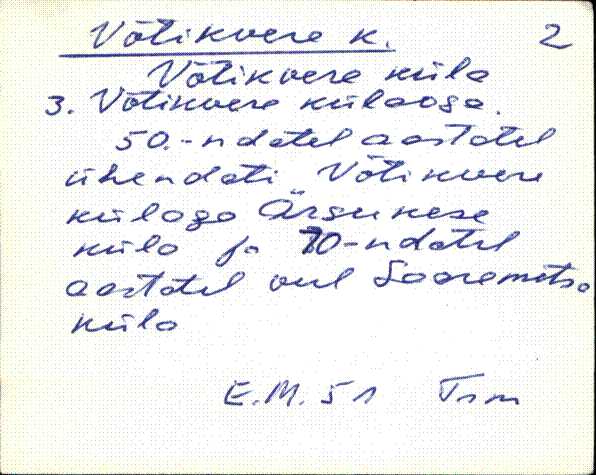 Võtikvere k. 2
Võtikvere küla
3. Võtikvere külaoga.
50.-ndatel aastatel
ühendati Võtikvere
külaga Ärsukese
küla ja 70-ndatel
aastatel veel Saaremetsa
küla
E.M. 51